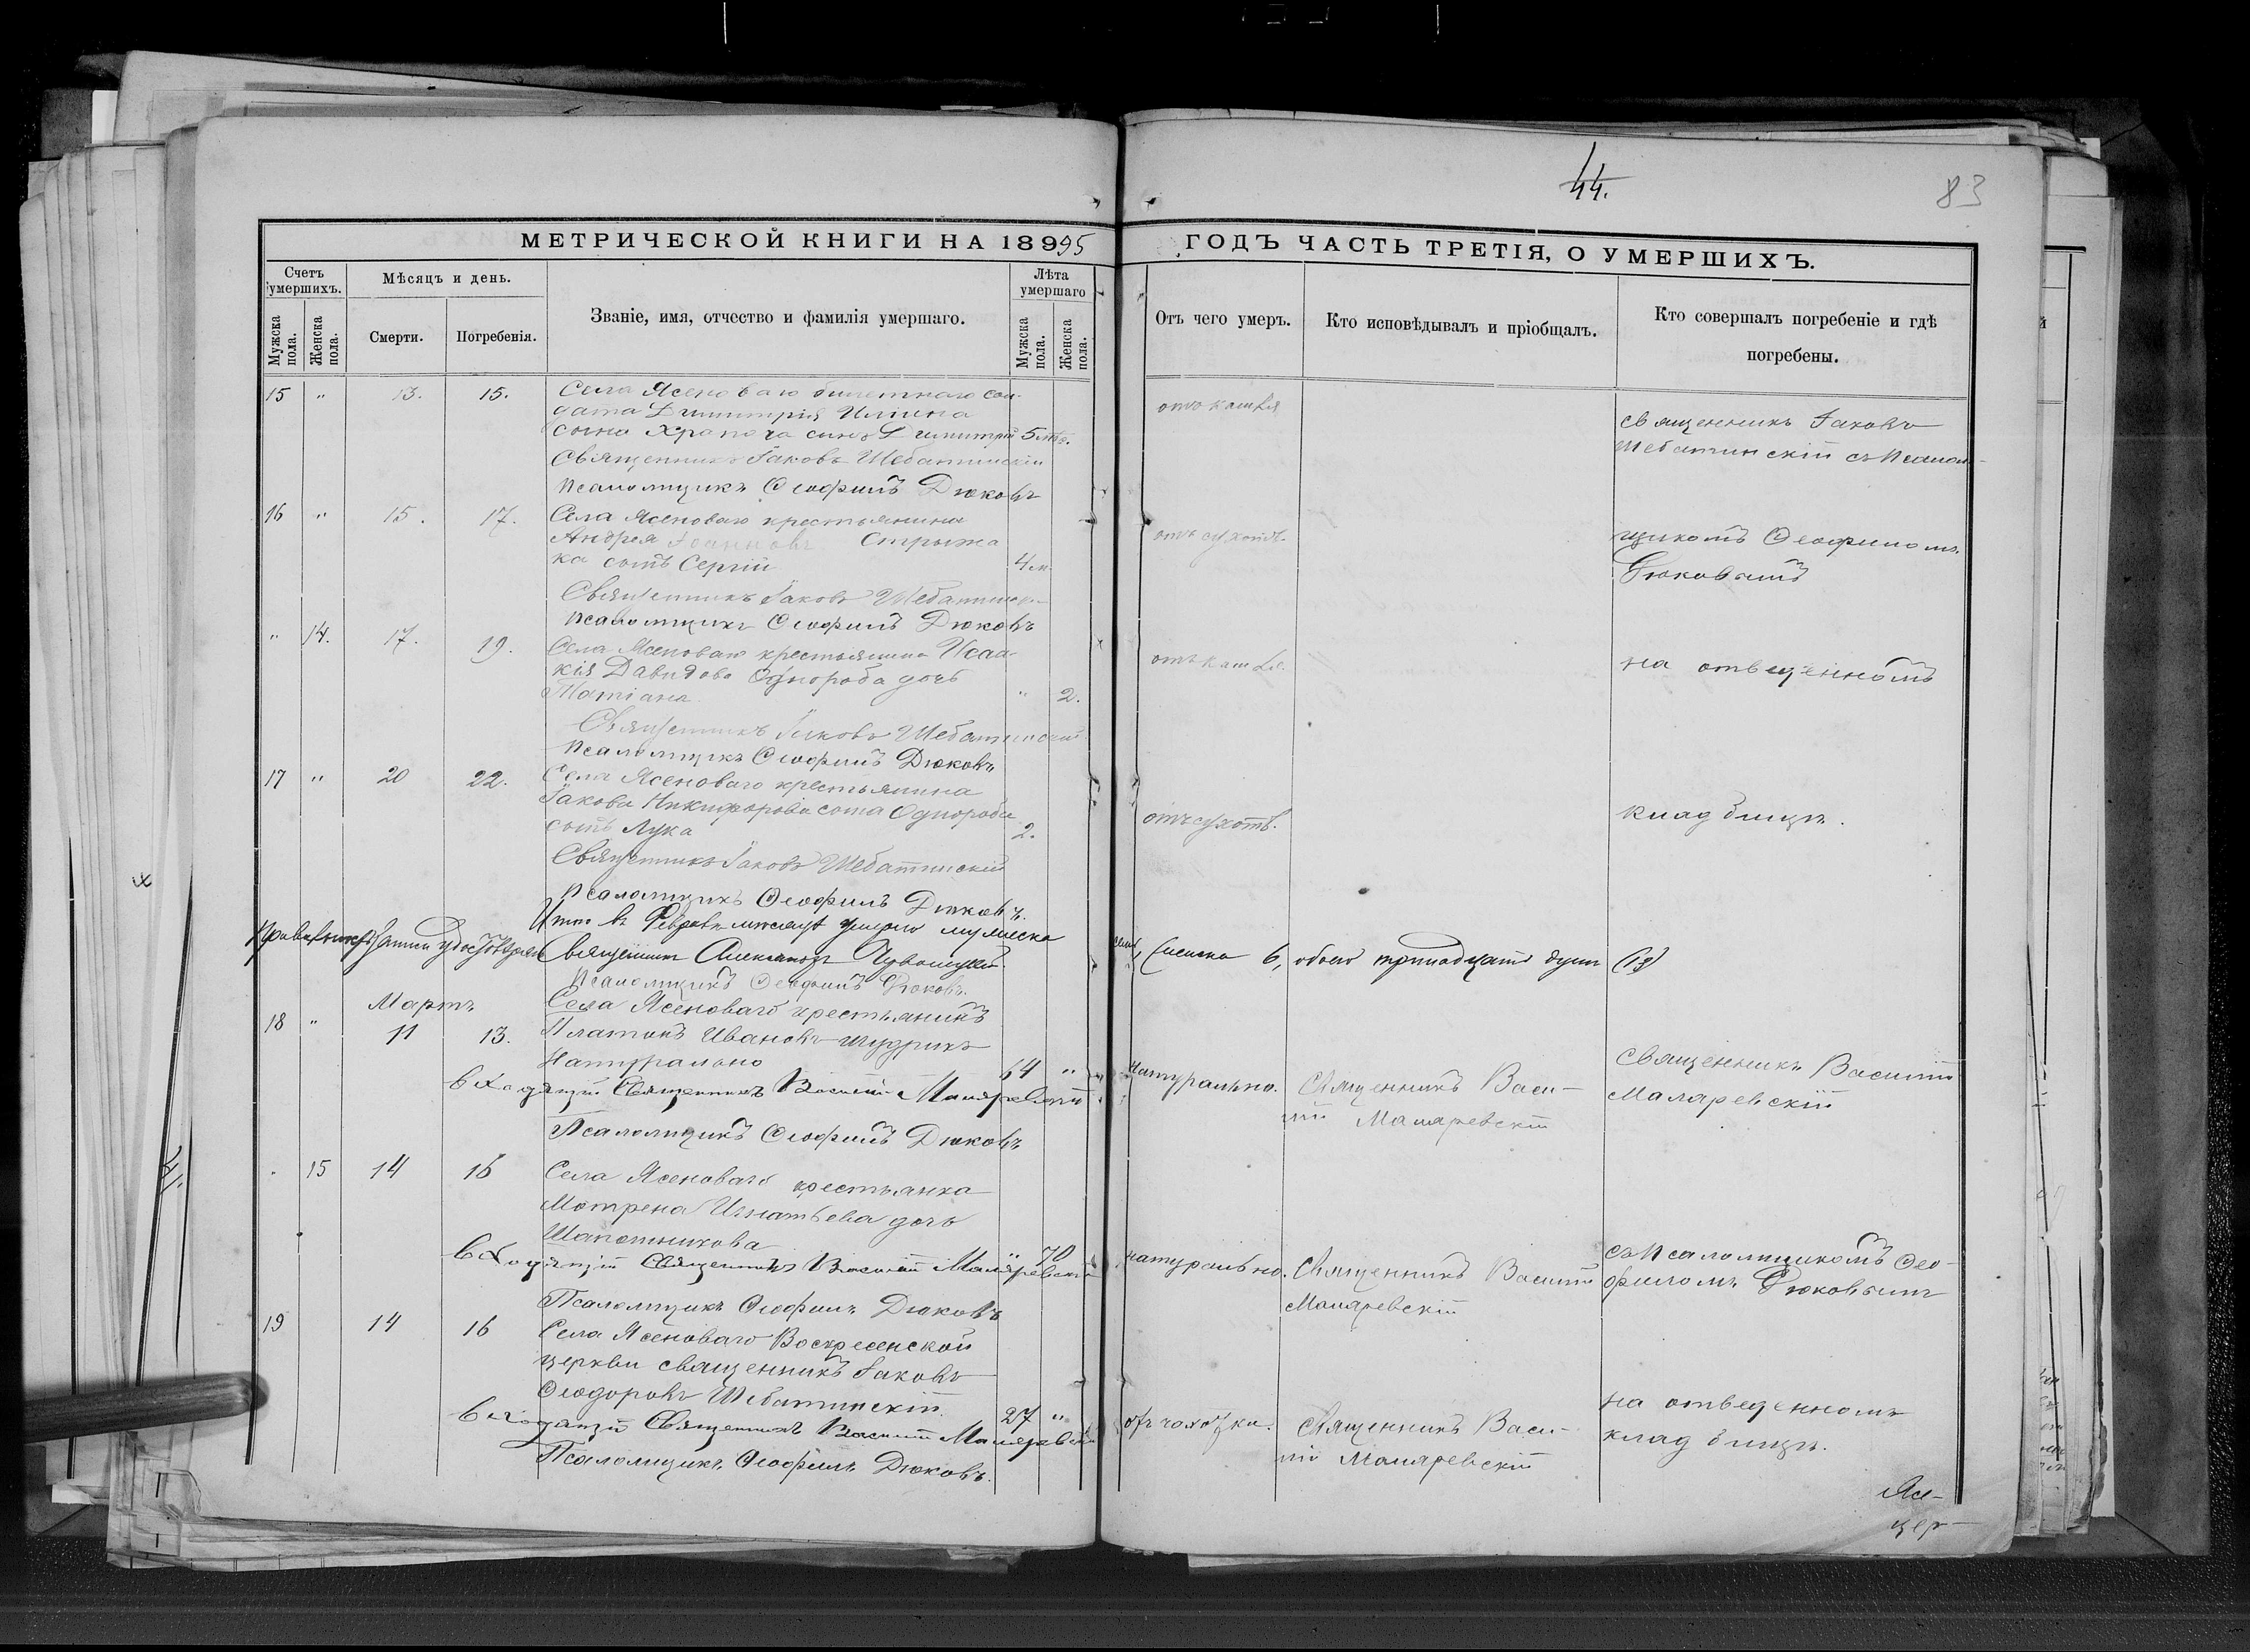 44.
83
МЕТРИЧЕСКОЙ КНИГИ НА 189 95
ГОДЪ ЧАСТЬ ТРЕТІЯ, О УМЕРШИХЪ.
Счетъ умершихъ.
Мужска пола.
Женска пола.
Мѣсяцъ и день.
Смерти.
Погребенія.
Званіе, имя, отчество и фамилія умершаго.
Лѣта умершаго
Мужска пола.
Женска пола.
Отъ чего умеръ.
Кто исповѣдывалъ и пріобщалъ.
Кто совершалъ погребеніе и гдѣ
погребены.
15 " 13. 15. Села Ясеноваго билетнаго сол-
дата Димитрія
сына сынъ Димитрій 5
Священникъ Іаковъ Шебатинскій
Псаломщикъ Ѳеофилъ Дюковъ
отъ кашля
священникъ Іаковъ
Шебатинскій съ Псалом-
16 " 15. 17. Села Ясеноваго крестьянина
Андрея Стрыжа
ка сынъ Сергій 4 м.
Священникъ Іаковъ
Псаломщикъ Ѳеофилъ Дюковъ
щикомъ Ѳеофиломъ
Дюковымъ
" 14. 17. 19. Села Ясеноваго крестьянина Исаа-
кія Давидова Однороба дочь
Матіана " 2.
Священникъ Іаковъ Шебатинскій
Псаломщикъ Ѳеофилъ Дюковъ
отъ кашля.
на отведенномъ
17 " 20 22. Села Ясеноваго крестьянина
Іакова Никифорова сына Однороба
сынъ Лука 2.
Священникъ Іаковъ Шебатинскій
Псаломщикъ Ѳеофилъ Дюковъ.
отъ сухотъ.
кладбищѣ.
Итого въ Февралѣ мѣсяцѣ умерло мужеска
женска 6, обоего тринадцать душъ (13)
Священникъ Александръ
Псаломщикъ Ѳеофилъ Дюковъ.
Мартъ
18 " 11 13. Села Ясеноваго крестьянинъ
Платонъ Ивановъ
Натурально 64 "
Священникъ Василій Маляревскій
Псаломщикъ Ѳеофилъ Дюковъ
натурально.
Священникъ Васи-
лій Маляревскій
Священникъ Василій
Маляревскій
" 15 14 16 Села Ясеноваго крестьянка
Мотрена Игнатьева дочь
Шапошникова " 70
Священникъ Василій Маляревскій
Псаломщикъ Ѳеофилъ Дюковъ
натурально.
Священникъ Василій
Маляревскій
съ Псаломщикомъ Ѳео-
филомъ Дюковымъ
19 14 16 Села Ясеноваго Воскресенской
церкви священникъ Іаковъ
Ѳеодоровъ Шебатинскій 27 "
Священникъ Василій Маляревскій
Псаломщикъ Ѳеофилъ Дюковъ.
отъ чахотки.
Священникъ Васи-
лій Маляревскій
на отведенномъ
кладбищѣ.